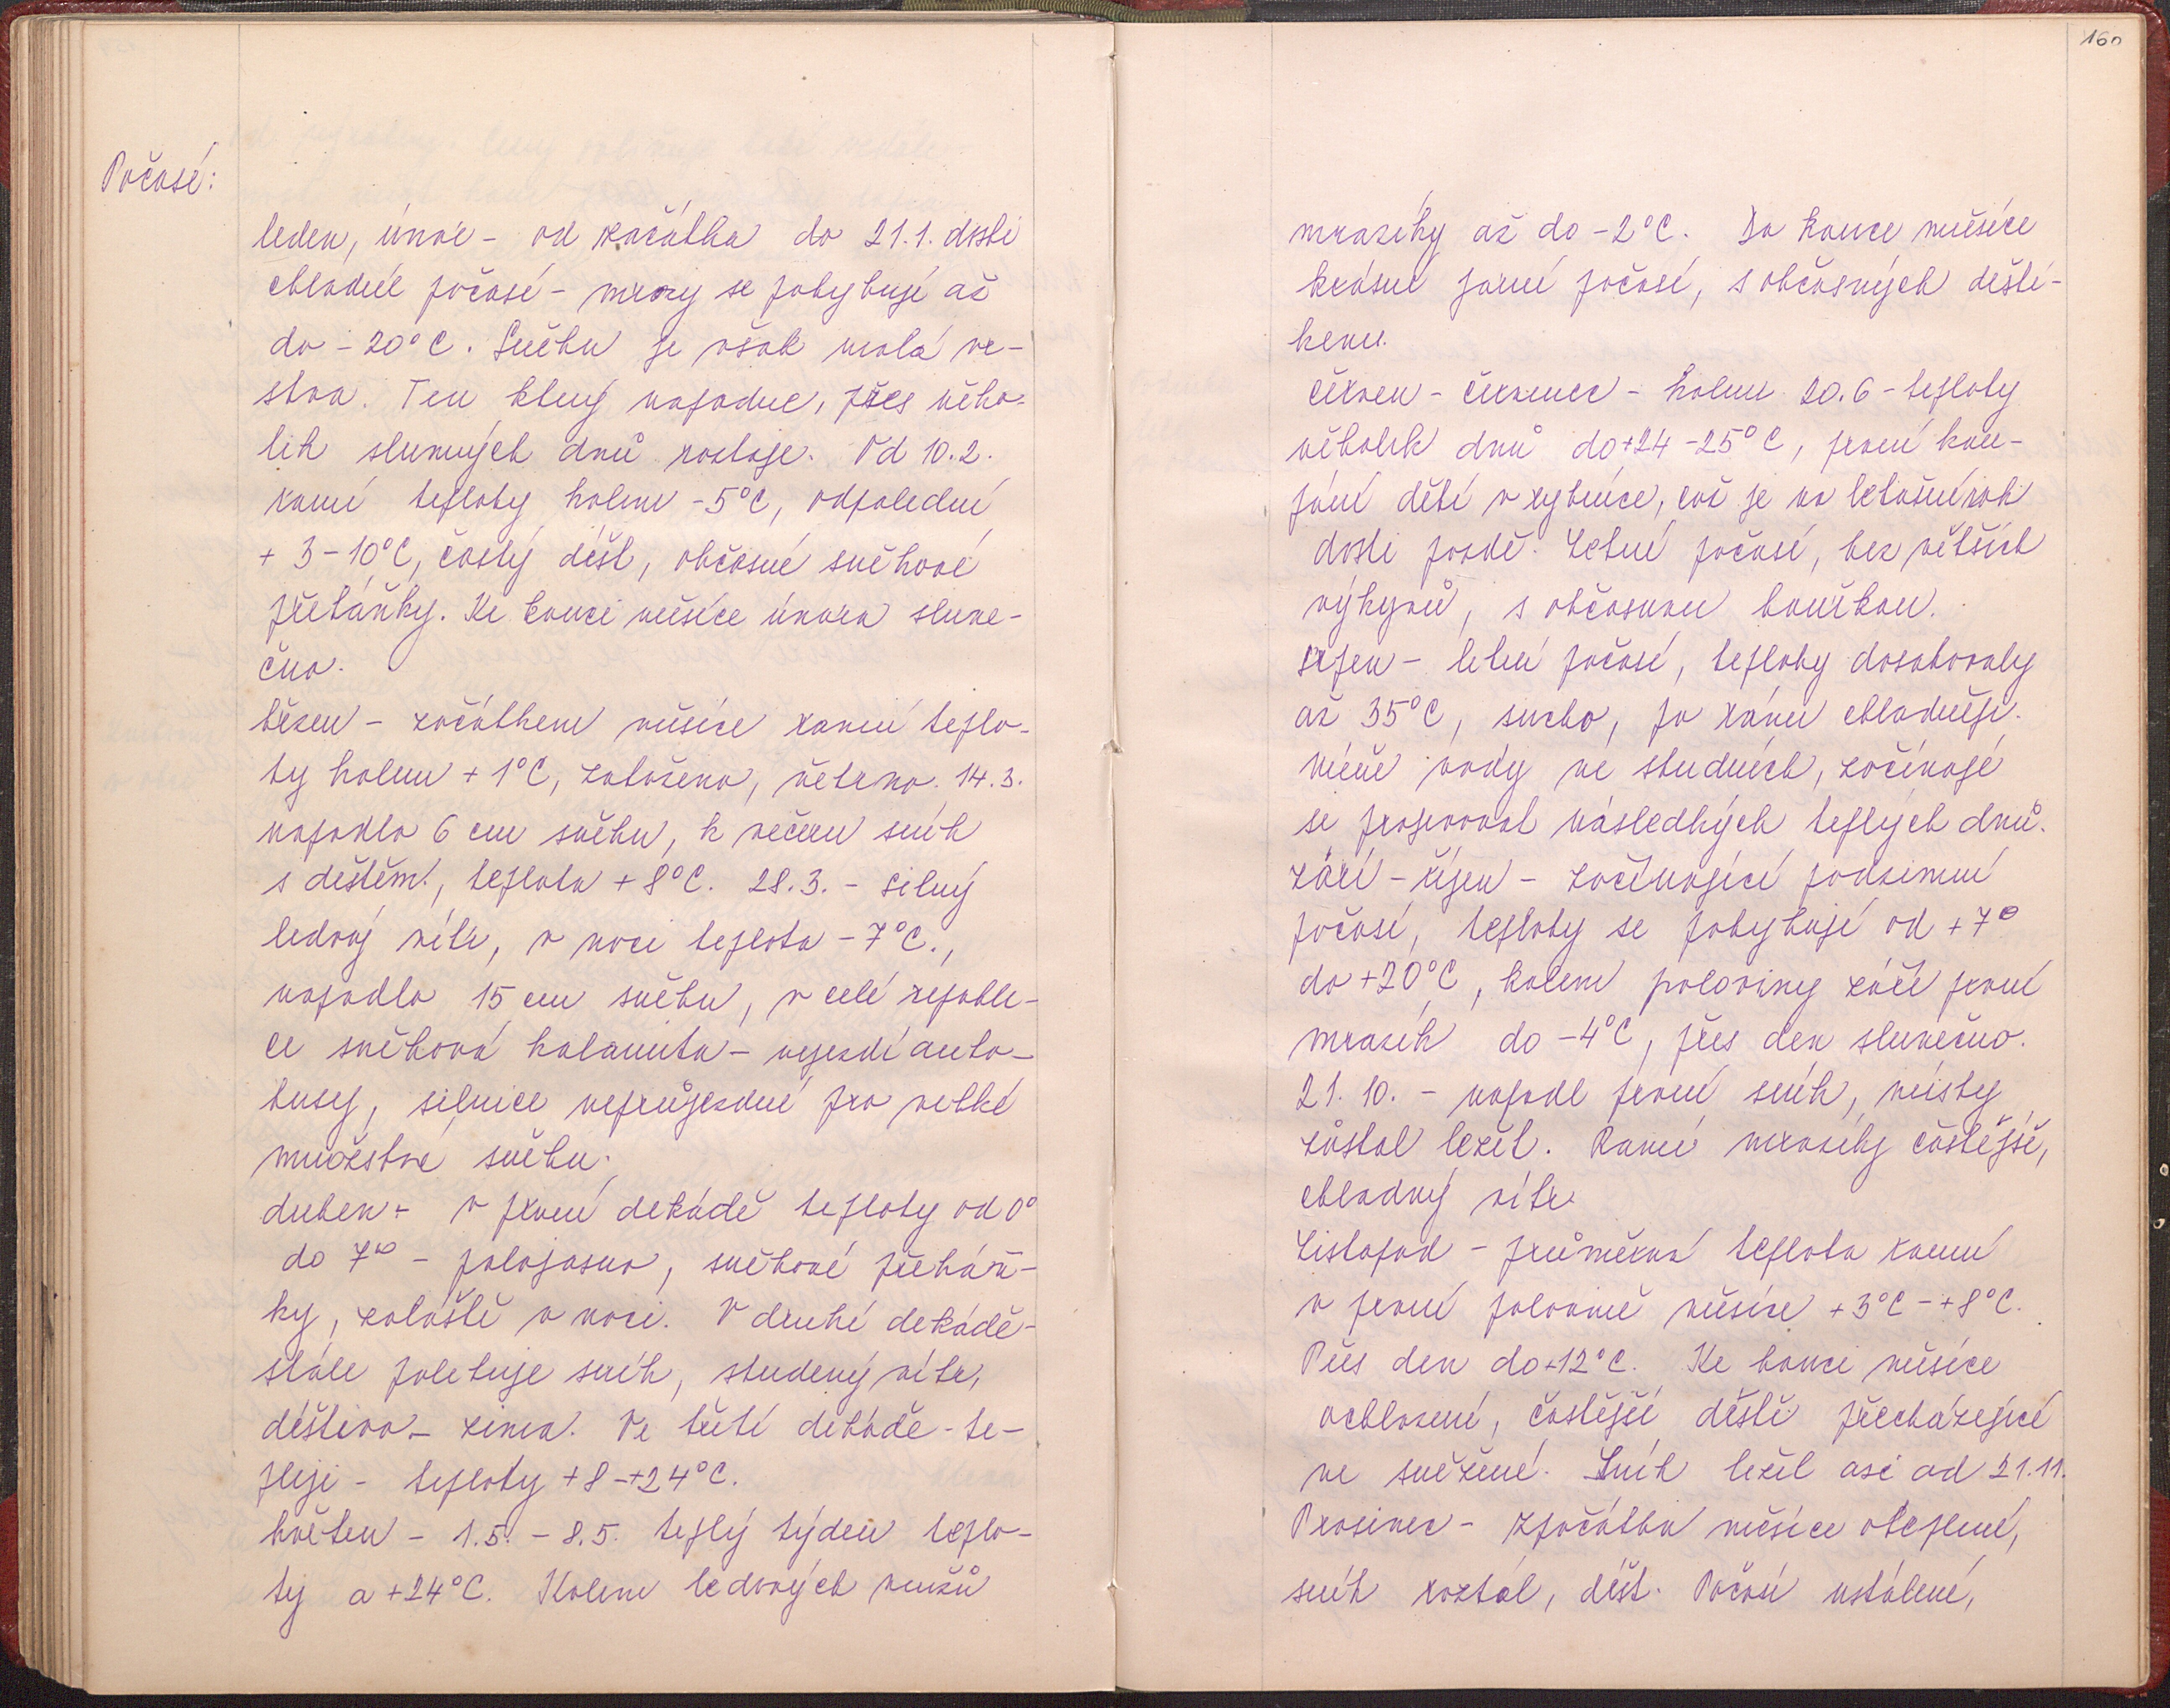 Počasí:
leden, únor - od začátku do 21.1. dosti
chladné počasí - mrazy se pohybují až
do -20°C. Sněhu je však malá vr-
stva. Ten který napadne, přes něko-
lik slunných dnů roztaje. Od 10.2.
ranní teploty kolem -5°C, odpolední
+ 3-10°C, častý déšť, občasné sněhové
přeháňky. Ke konci měsíce února slune-
čno.
březen - začátkem měsíce ranní teplo-
ty kolem +1°C, zataženo, větrno. 14.3.
napadlo 6 cm sněhu, k večeru sníh
s deštěm, teplota +8°C. 28.3. - silný
ledový vítr, v noci teplota -7°C.,
napadlo 15 cm sněhu, v celé republi-
ce sněhová kalamita - nejezdí auto-
busy, silnice neprůjezdné pro velké
množství sněhu.
duben - v první dekádě teploty od 0°
do 7° - polojasno, sněhové přeháň-
ky, zvláště v noci. V druhé dekádě -
stále poletuje sníh, studený vítr,
deštivo - zima. Ve třetí dekádě - te-
pleji - teploty +8-+24°C.
květen - 1.5. - 8.5. teplý týden teplo-
ty a +24°C. Kolem ledových mužů
160
mrazíky až do -2°C. Do konce měsíce
krásné jarní počasí, s občasných dešti-
kem.
červen - červenec - kolem 20.6 - teploty
několik dnů do +24 -25°C, první kou-
pání dětí v rybníce, což je na letošní rok
dosti pozdě. Letní počasí, bez větších
výkyvů, s občasnou bouřkou.
srpen - letní počasí, teploty dosahovaly
až 35°C, sucho, po ránu chladněji.
méně vody ve studních, začínají
se projevovat následkých teplých dnů.
září - říjen - začínající podzimní
počasí, teploty se pohybují od +7°
do +20°C, kolem poloviny září první
mrazík do -4°C, přes den slunečno.
21. 10. - napadl první sníh, místy
zůstal ležet. Ranní mrazíky častější,
chladný vítr
Listopad - průměrná teplota ranní
v první polovině měsíce +3°C - +8°C.
Přes den do +12°C. Ke konci měsíce
ochlazení, častější deště přecházející
ve sněžení. Sníh ležel asi od 21.11.
Prosinec - zpočátku měsíce oteplení,
sníh roztál, déšť. Počasí ustálené,